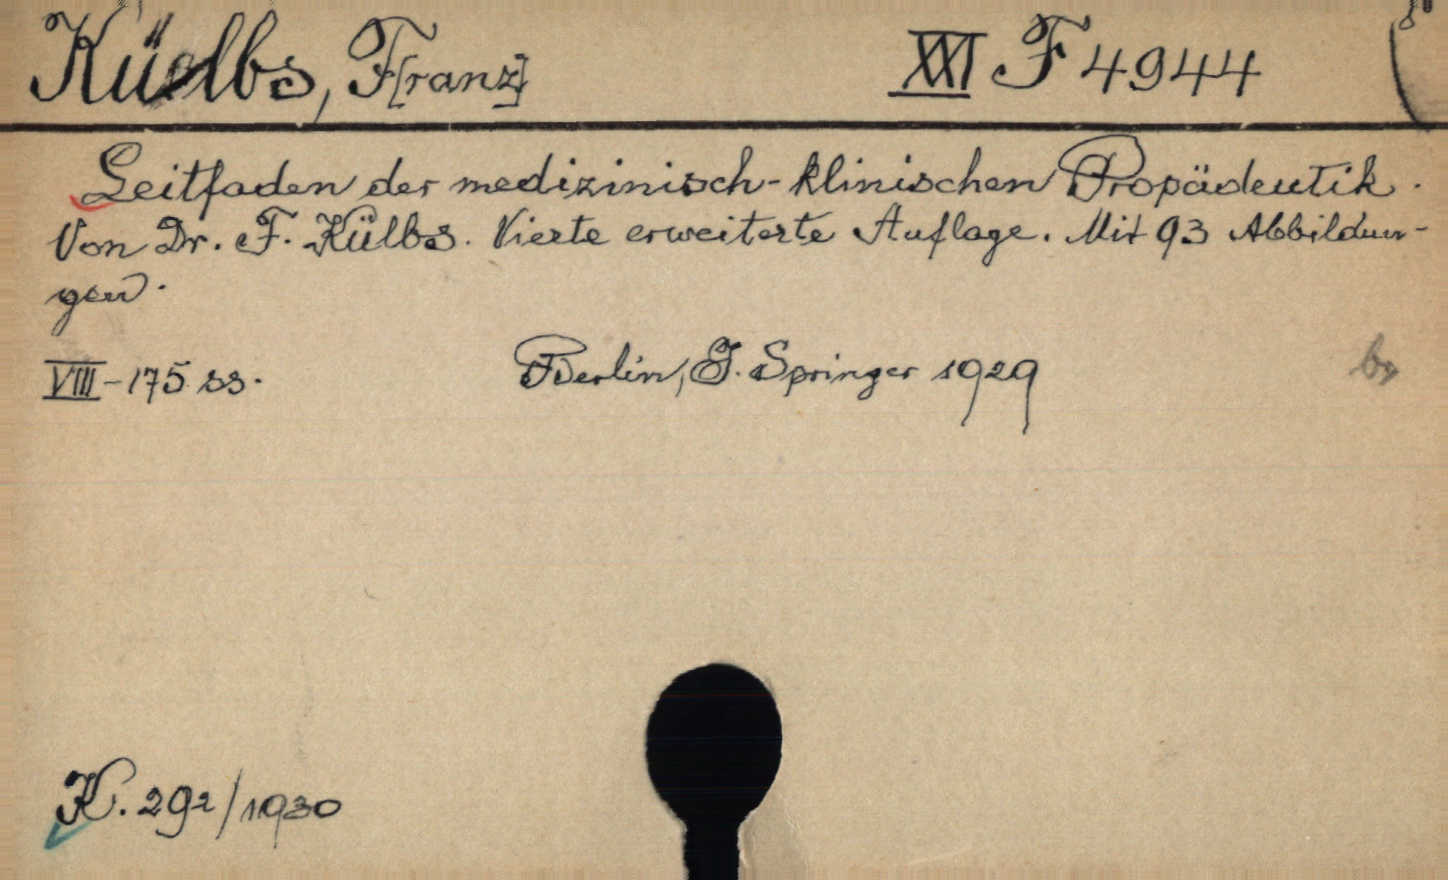 Külbs, F[ranz] XXI F 4944
Leitfaden der medizinisch-klinischen Propädeutik.
Von Dr. F. Külbs. Vierte erweiterte Auflage. Mit 93 Abbildun-
gen.
VIII-175 ss. Berlin, J. Springer 1929
br
K. 292/1930